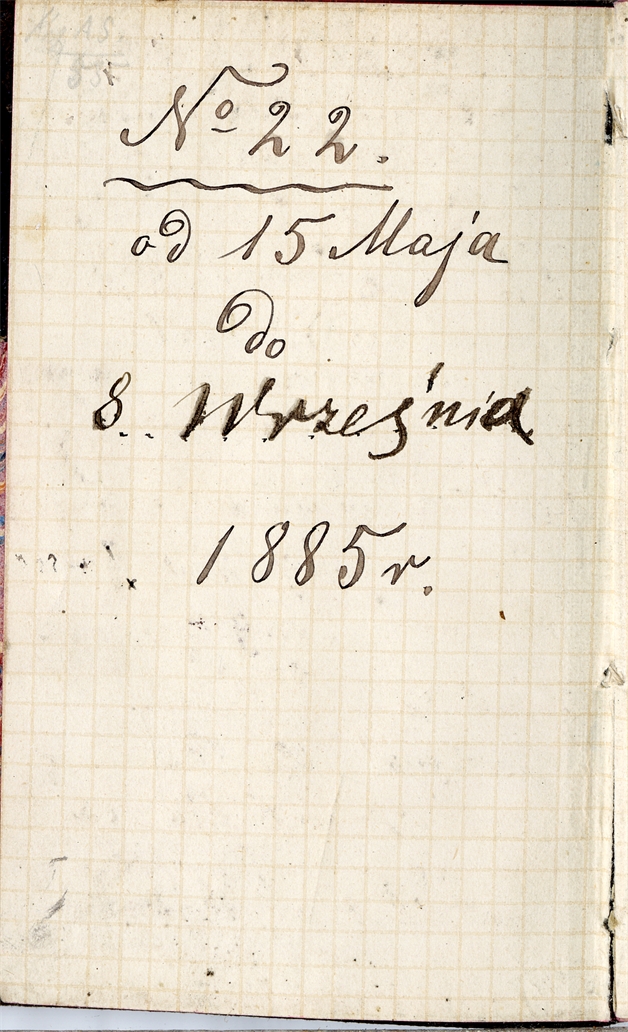 No 22.
od 15 Maja
do
8. Września
1885 r.